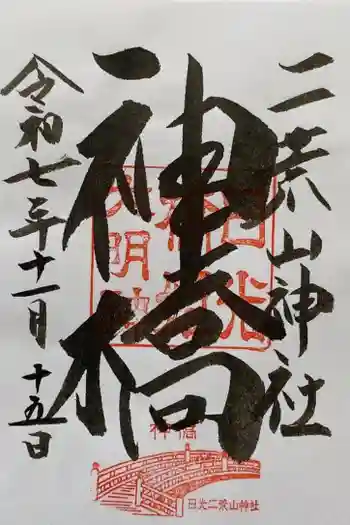 二荒山神社
神橋
令和七年十一月十五日
神橋
日光二荒山神社